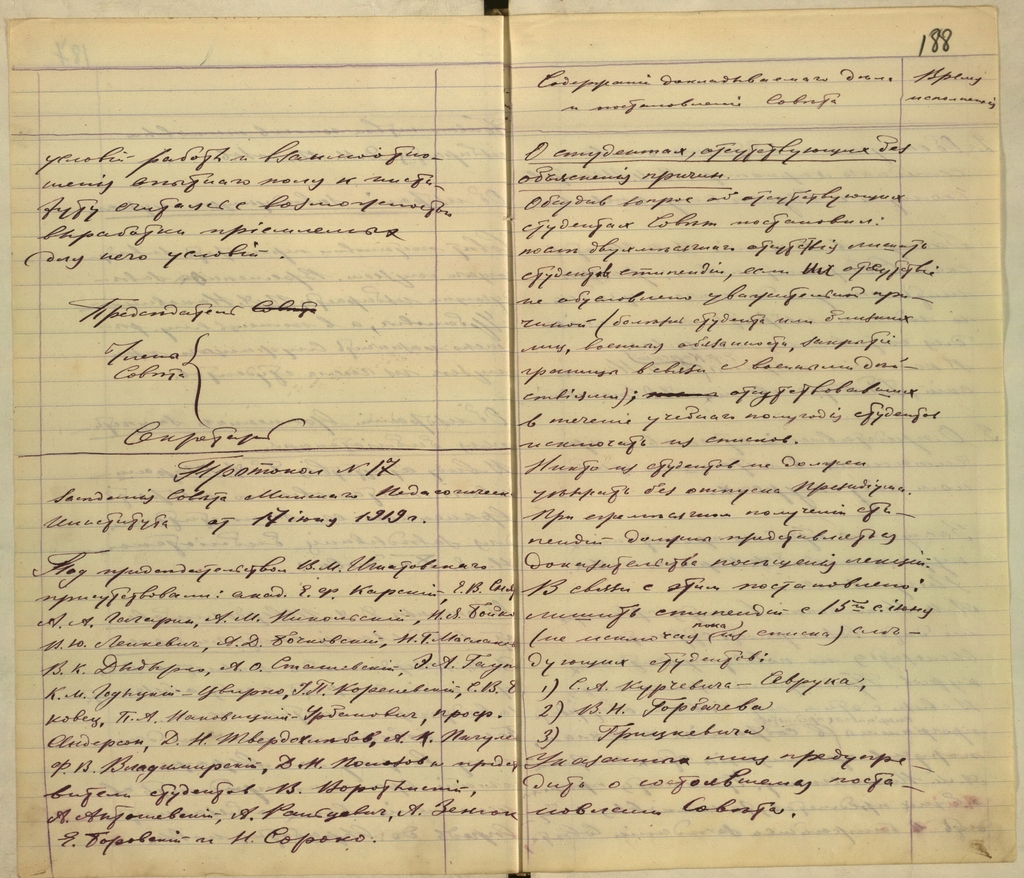 условій работъ и взаимоотно-
шенія опытнаго поля къ инсти-
туту считаясь с возможностью
выработки пріемлемыхъ
для него условій.
Председатель Совета
Члены
Совѣта
Секретарь
Протокол № 17
заседанія Совѣта Минскаго Педагогическ
Института от 17 іюня 1919 г.
Под председательством В. М. Игнатовскаго
присутствовали: акад. Е. Ф. Карскій, Е. В.
А. А. Гагарин, А. М. Никольскій, Н. Я. Бойко
И. Ю. Лецкевич, А. Д. Бочковскій, Н. Г. Маслако
В. К. Дыдырко, А. О. Сташевскій, Э. А.
К. М. Годыцкій-Цвирко, І. П. Кореневскій, С. В.
ковец, П. А. Маковицкій-Урбанович, проф.
Андерсон, Д. Н. Твердохлебов, А. К. Пигуле
Ф. В. Владимирскій, Д. М. Полозов и предст
вители студентов В. Воротынскій,
А. Антошевскій, А. Ранцевич, А. Зенюк
Е. Боровскій и Н. Сороко.
188
Содержаніе докладываемаго дѣла
и постановленія Совѣта
Время
исполненія
О студентах, отсутствующих без
объясненія причин.
Обсудив вопрос об отсутствующих
студентах Совѣт постановил:
после двухмѣсячнаго отсутствія лишать
студентов стипендіи, если их отсутствіе
не обусловлено уважительной при-
чиной (болезнь студента или близких
лиц, военная обязанность, закрытіе
границы в связи с военными дей-
ствіями); отсутствовавших
в теченіе учебнаго полугодія студентов
исключать из списков.
Никто из студентов не должен
уезжать без отпуска Президіума.
При ежемѣсячном полученіи сти-
пендій должны представляться
доказательства посещенія лекцій.
В связи с этим постановлено:
лишить стипендій с 15го с. іюня
(не исключая пока из списка) слѣ-
дующих студентов:
1) С. А. Курчевича-Севрука,
2) В. Н. Горбачева
3) Грицкевича
Указанных лиц предупре-
дить о состоявшемся поста-
новленіи Совѣта.